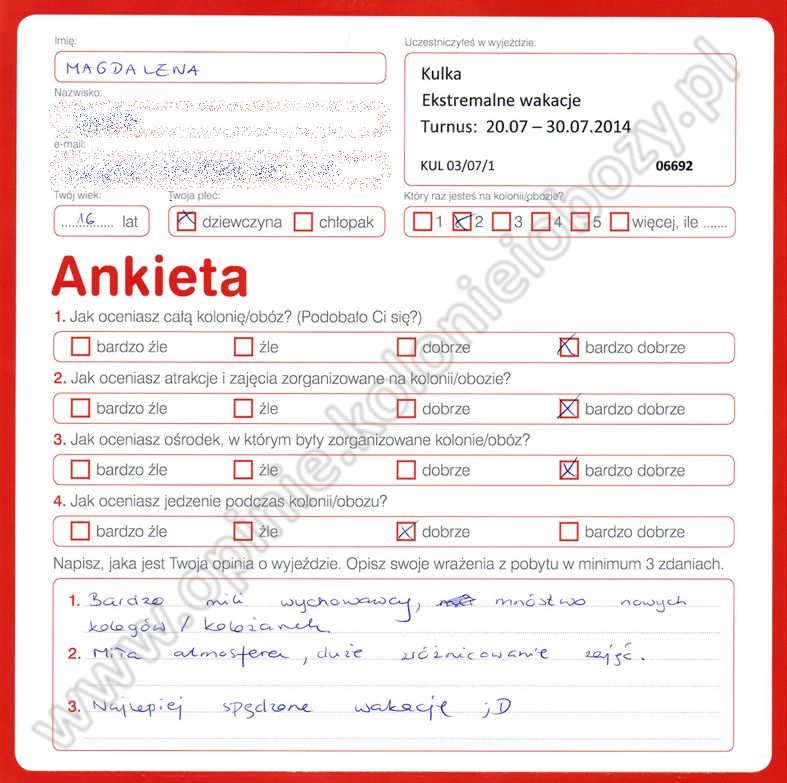 Imię:
Uczestniczyłeś w wyjeździe:
MAGDALENA
Kulka
Ekstremalne wakacje
Turnus: 20.07 – 30.07.2014
KUL 03/07/1 06692
Nazwisko:
e-mail:
Twój wiek: Twoja płeć: Który raz jesteś na kolonii/obozie?
16 lat dziewczyna chłopak 1 2 3 4 5 więcej, ile .......
Ankieta
1. Jak oceniasz całą kolonię/obóz? (Podobało Ci się?)
bardzo źle źle dobrze bardzo dobrze
2. Jak oceniasz atrakcje i zajęcia zorganizowane na kolonii/obozie?
bardzo źle źle dobrze bardzo dobrze
3. Jak oceniasz ośrodek, w którym były zorganizowane kolonie/obóz?
bardzo źle źle dobrze bardzo dobrze
4. Jak oceniasz jedzenie podczas kolonii/obozu?
bardzo źle źle dobrze bardzo dobrze
Napisz, jaka jest Twoja opinia o wyjeździe. Opisz swoje wrażenia z pobytu w minimum 3 zdaniach.
1. Bardzo mili wychowawcy, mnóstwo nowych
kolegów / koleżanek
2. Miła atmosfera, duże zróżnicowanie zajęć.
3. Najlepiej spędzone wakacje ;D
www.opinie.kolonieiobozy.pl